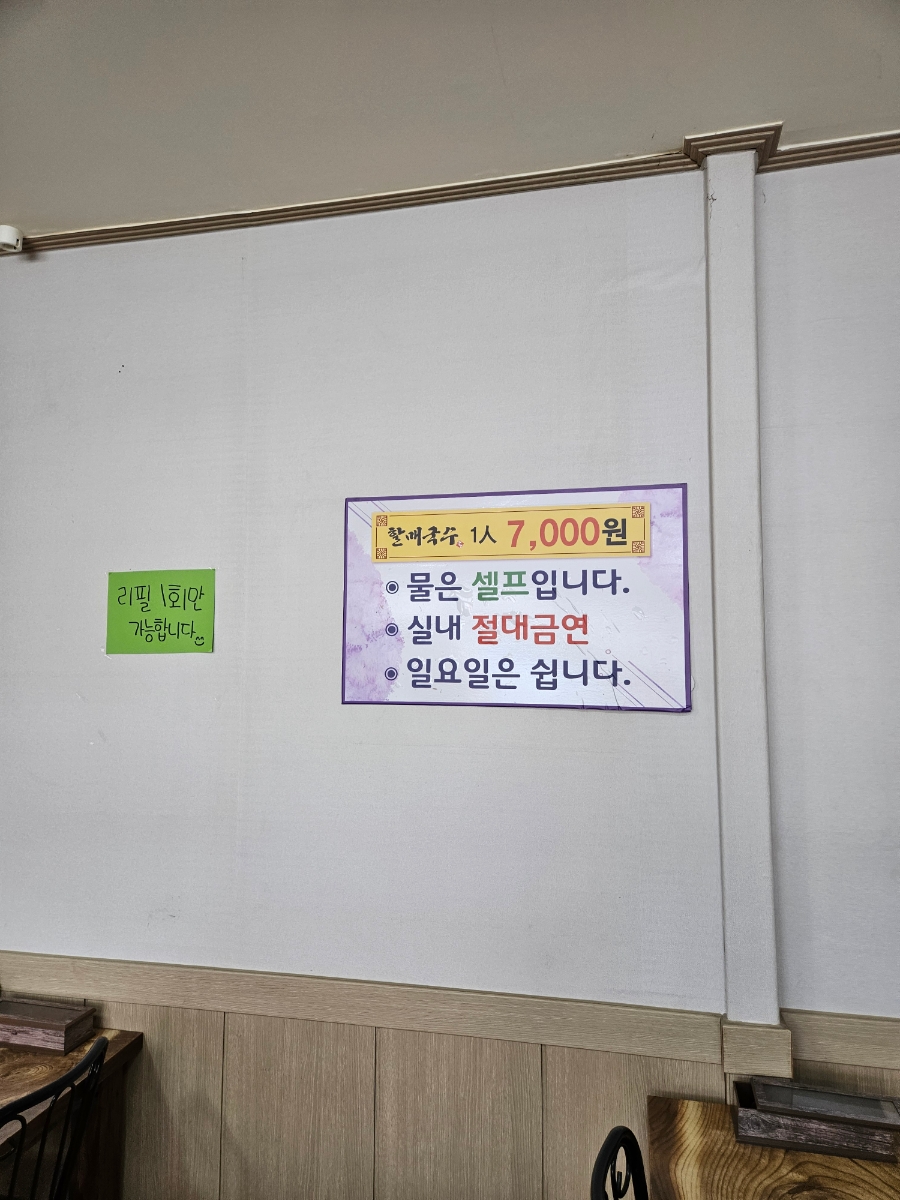 리필 1회만
가능합니다
할매국수 1人 7,000원
물은 셀프입니다.
실내 절대금연
일요일은 쉽니다.